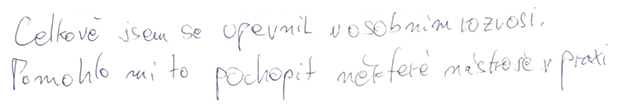 Celkově jsem se upevnil v osobním rozvoji.
Pomohlo mi to pochopit některé nástroje v praxi